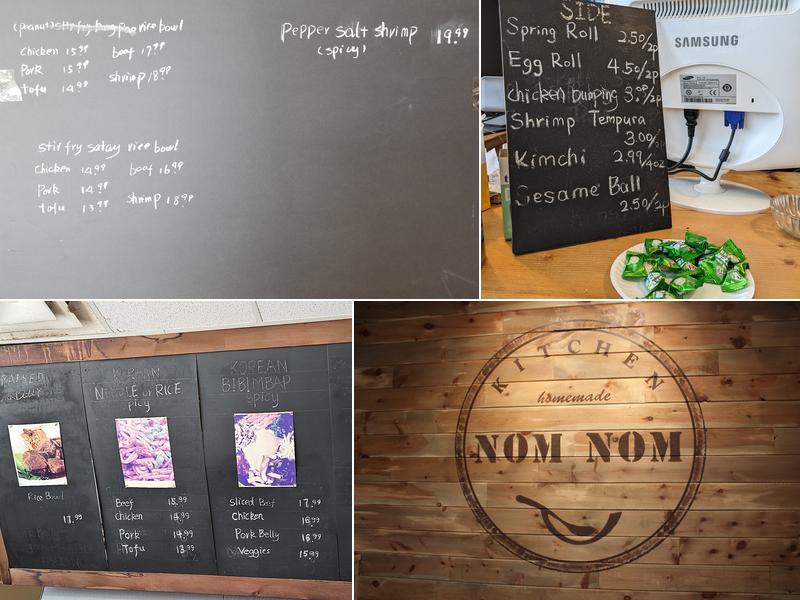 (peanut) stir fry kung pao rice bowl
chicken 15.99 beef 17.99
Pork 15.99 shrimp 18.99
tofu 14.99
pepper salt shrimp 19.99
(spicy)
stir fry satay rice bowl
chicken 14.99 beef 16.99
Pork 14.99
tofu 13.99 shrimp 18.99
SIDE
Spring Roll 2.50/2p
Egg Roll 4.50/2p
chicken Dumping 3.99/2p
Shrimp Tempura
3.00/
Kimchi 2.99/4oz
Sesame Ball
2.50/2p
SAMSUNG
BRAISED
Rice Bowl
17.99
KOREAN
NOODLE or RICE
spicy
Beef 15.99
chicken 14.99
Pork 14.99
Tofu 13.99
KOREAN
BIBIMBAP
spicy
Sliced Beef 17.99
Chicken 16.99
Pork Belly 16.99
Veggies 15.99
KITCHEN
homemade
NOM NOM